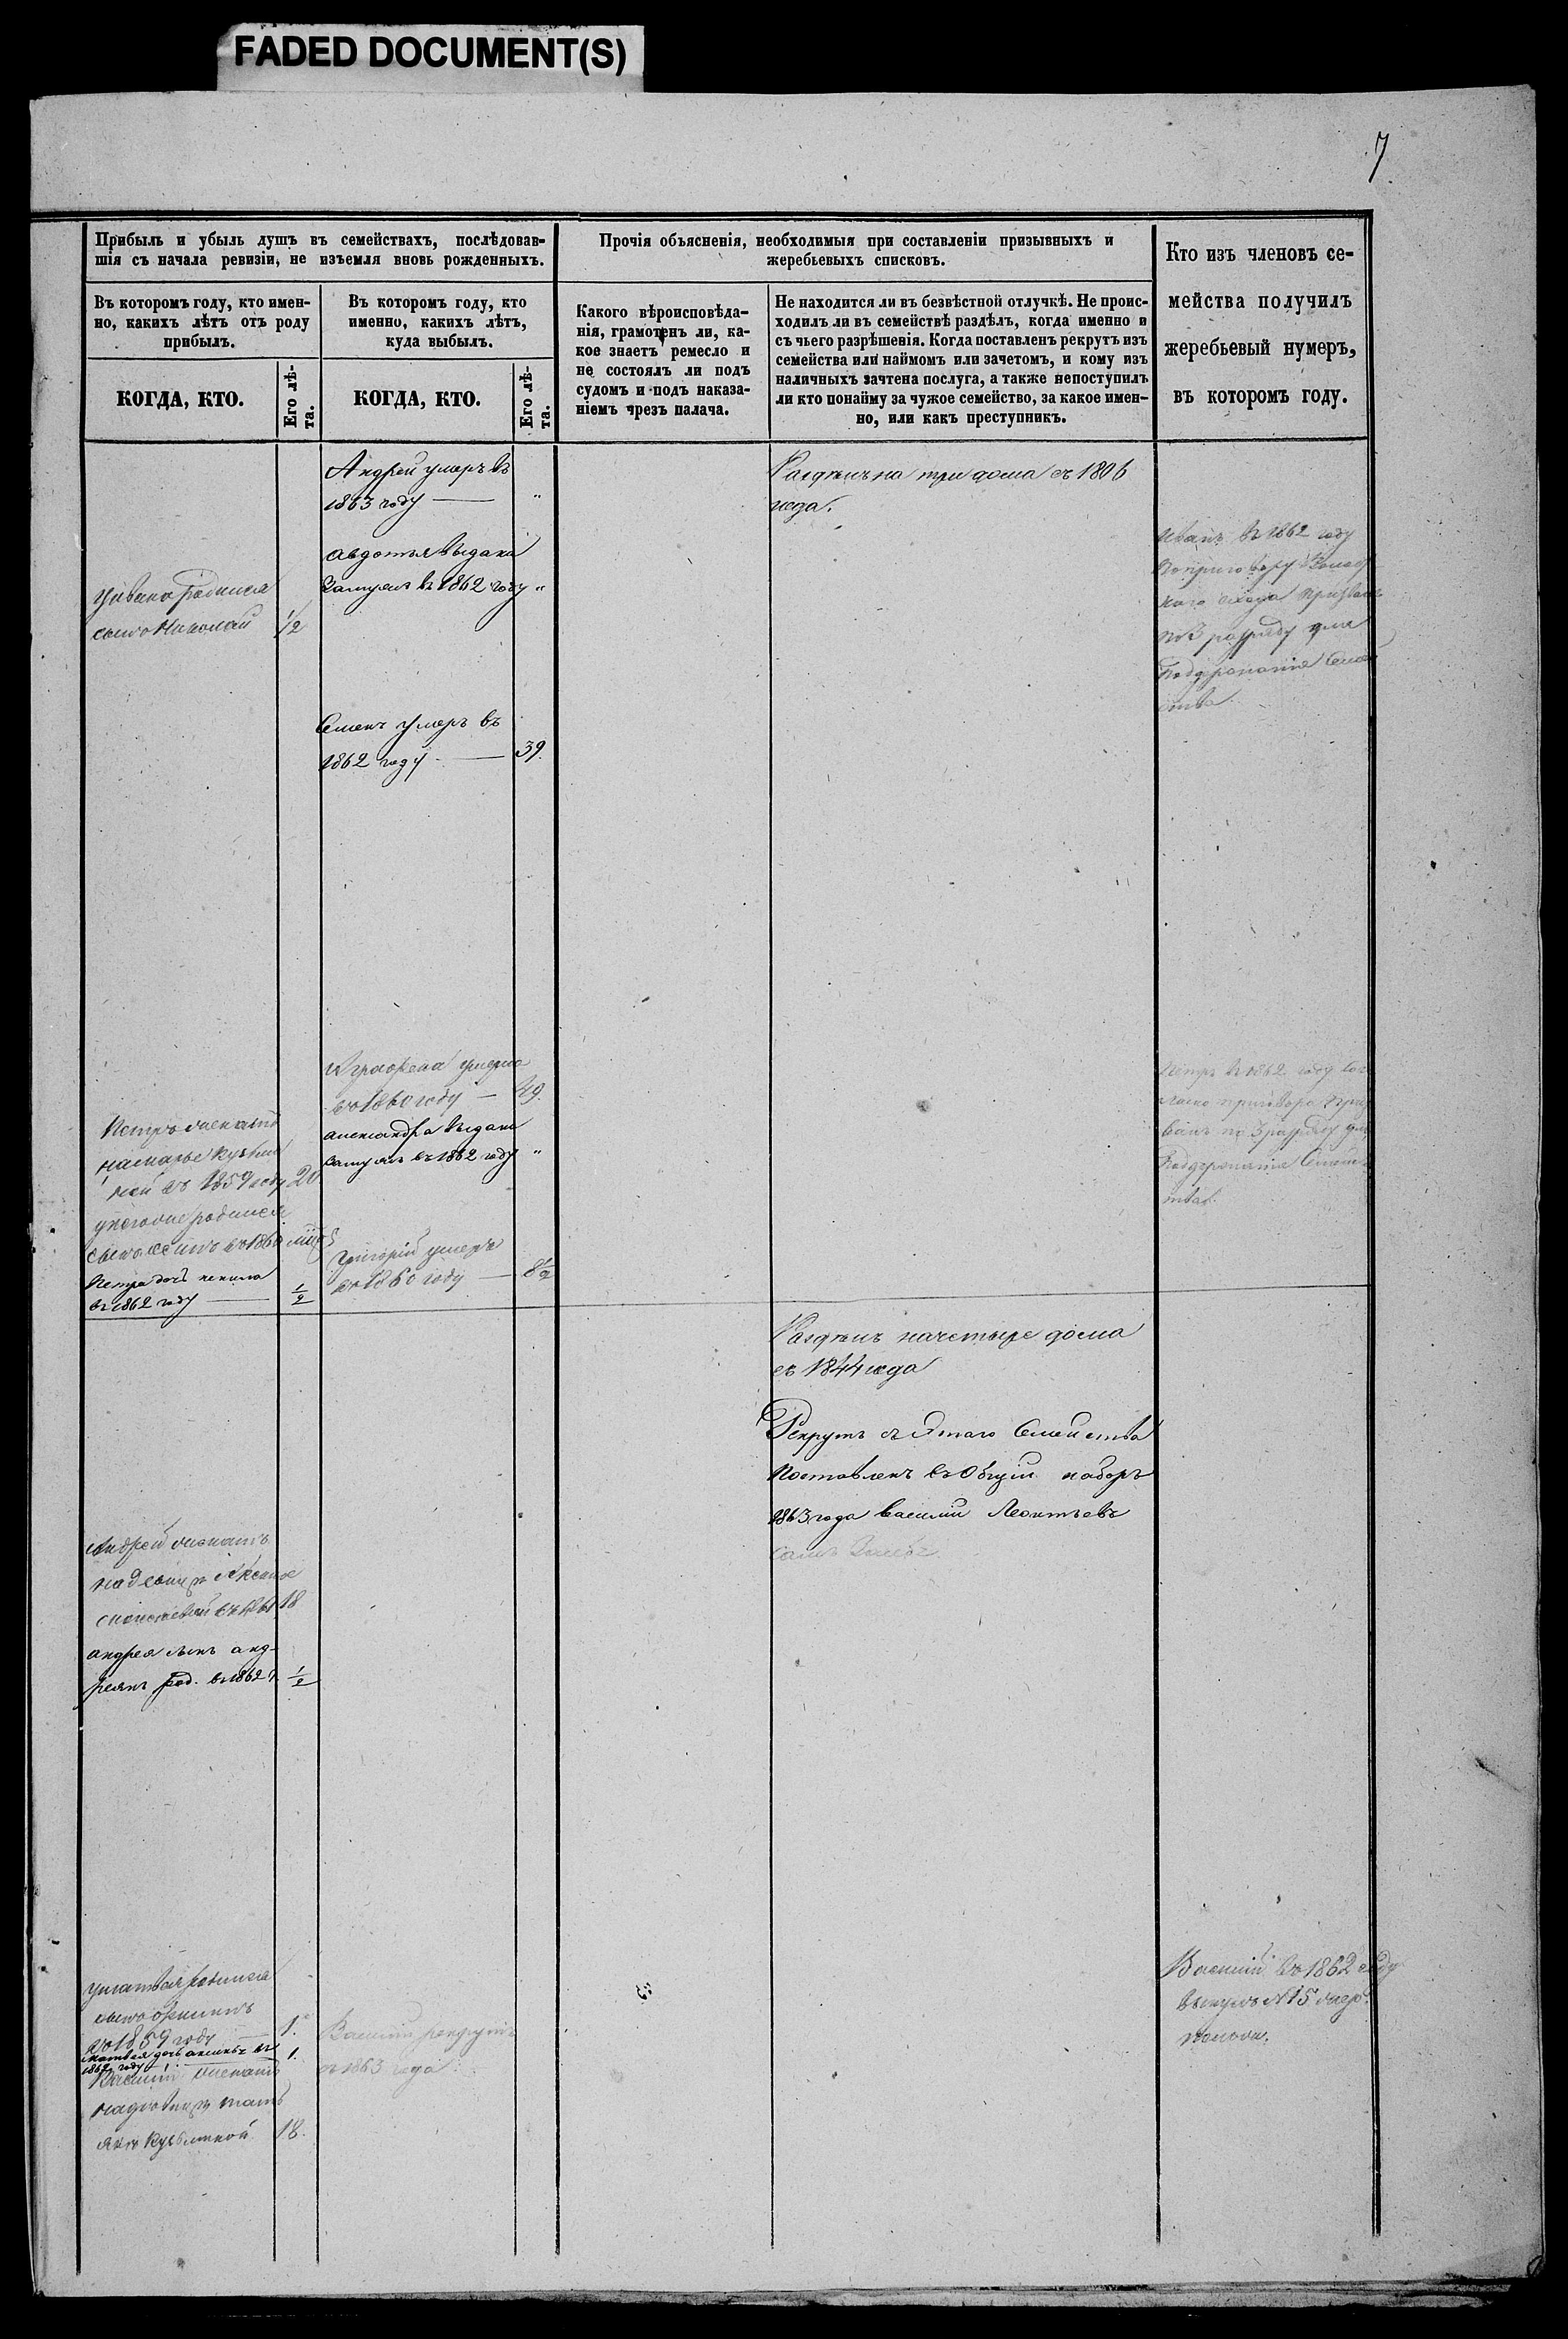 FADED DOCUMENT(S)
7
Прибыль и убыль душъ въ семействахъ, послѣдовав-
шія съ начала ревизіи, не изъемля вновь рожденныхъ.
Прочія объясненія, необходимыя при составленіи призывныхъ и
жеребьевыхъ списковъ.
Кто изъ членовъ се-
мейства получилъ
жеребьевый нумеръ,
въ которомъ году.
Въ которомъ году, кто имен-
но, какихъ лѣтъ отъ роду
прибылъ.
Въ которомъ году, кто
именно, какихъ лѣтъ,
куда выбылъ.
Какого вѣроисповѣда-
нія, грамотенъ ли, ка-
кое знаетъ ремесло и
не состоялъ ли подъ
судомъ и подъ наказа-
ніемъ чрезъ палача.
Не находится ли въ безвѣстной отлучкѣ. Не проис-
ходилъ ли въ семействѣ раздѣлъ, когда именно и
съ чьего разрѣшенія. Когда поставленъ рекрутъ изъ
семейства или наймомъ или зачетомъ, и кому изъ
наличныхъ зачтена послуга, а также непоступилъ
ли кто понайму за чужое семейство, за какое имен-
но, или какъ преступникъ.
КОГДА, КТО.
Его лѣ-
та.
КОГДА, КТО.
Его лѣ-
та.
Андрей умеръ въ
1863 году — "
Раздѣлъ на три дома съ 1806
года.
Авдотья выдана
замужъ въ 1862 году "
Иванъ въ 1862 году
по приговору
схода
по 3 разряду для
У Ивана родился
сынъ Николай 1/2
Семенъ умеръ въ
1862 году — 39.
умерла
въ 1860 году — 49.
Александра выдана
замужъ въ 1862 году "
Петръ въ 1862 году
приговора
по 3 разряду для
Петръ женатъ
на Марье Кузьми
ной въ 1859 году 20
у него же родился
сынъ въ 1860
Петра дочь
въ 1862 году — 1/2
Григорій умеръ
въ 1860 году — 8 1/2
Раздѣлъ на четыре дома
съ 1844 года
Рекрутъ съ этаго Семейства
поставленъ въ общій наборъ
1863 года Василій Леонтьевъ
Андрей женатъ
на девице Аксинье
18
Андрея сынъ Анд-
реянъ род. въ 1862 г. 1/2
У Матвея родился
сынъ
въ 1859 году — 1.
Матвея дочь въ
1862 году — 1.
Василій женатъ
на девице Тать
яне Кузьминой 18.
Василій рекрутъ
съ 1863 года
Василій въ 1862 году
вынулъ № 15